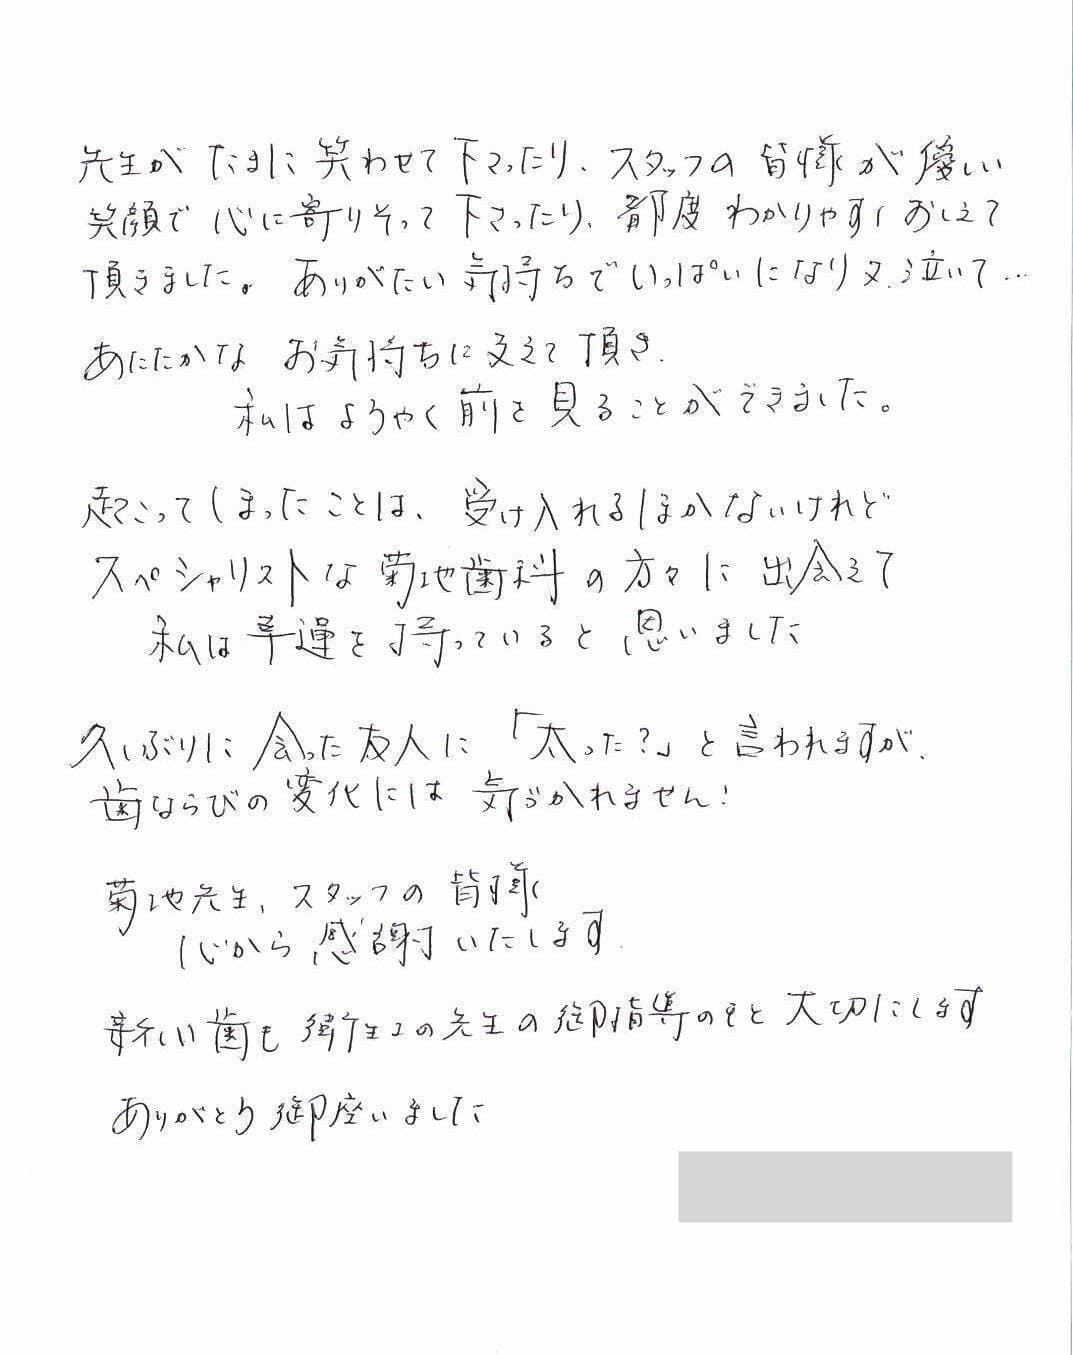 先生がたまに笑わせて下さったり、スタッフの皆様が優しい
笑顔で心に寄りそって下さったり、都度わかりやすくおしえて
頂きました。ありがたい気持ちでいっぱいになり又、泣いて…
あたたかな お気持ちに支えて頂き、
私はようやく前を見ることができました。
起こってしまったことは、受け入れるほかないけれど
スペシャリストな菊地歯科の方々に出会えて
私は幸運を持っていると思いました
久しぶりに会った友人に「太った？」と言われますが、
歯ならびの変化には気づかれません！
菊地先生、スタッフの皆様
心から感謝いたします
新しい歯も衛生士の先生の御指導のもと大切にします
ありがとう御座いました